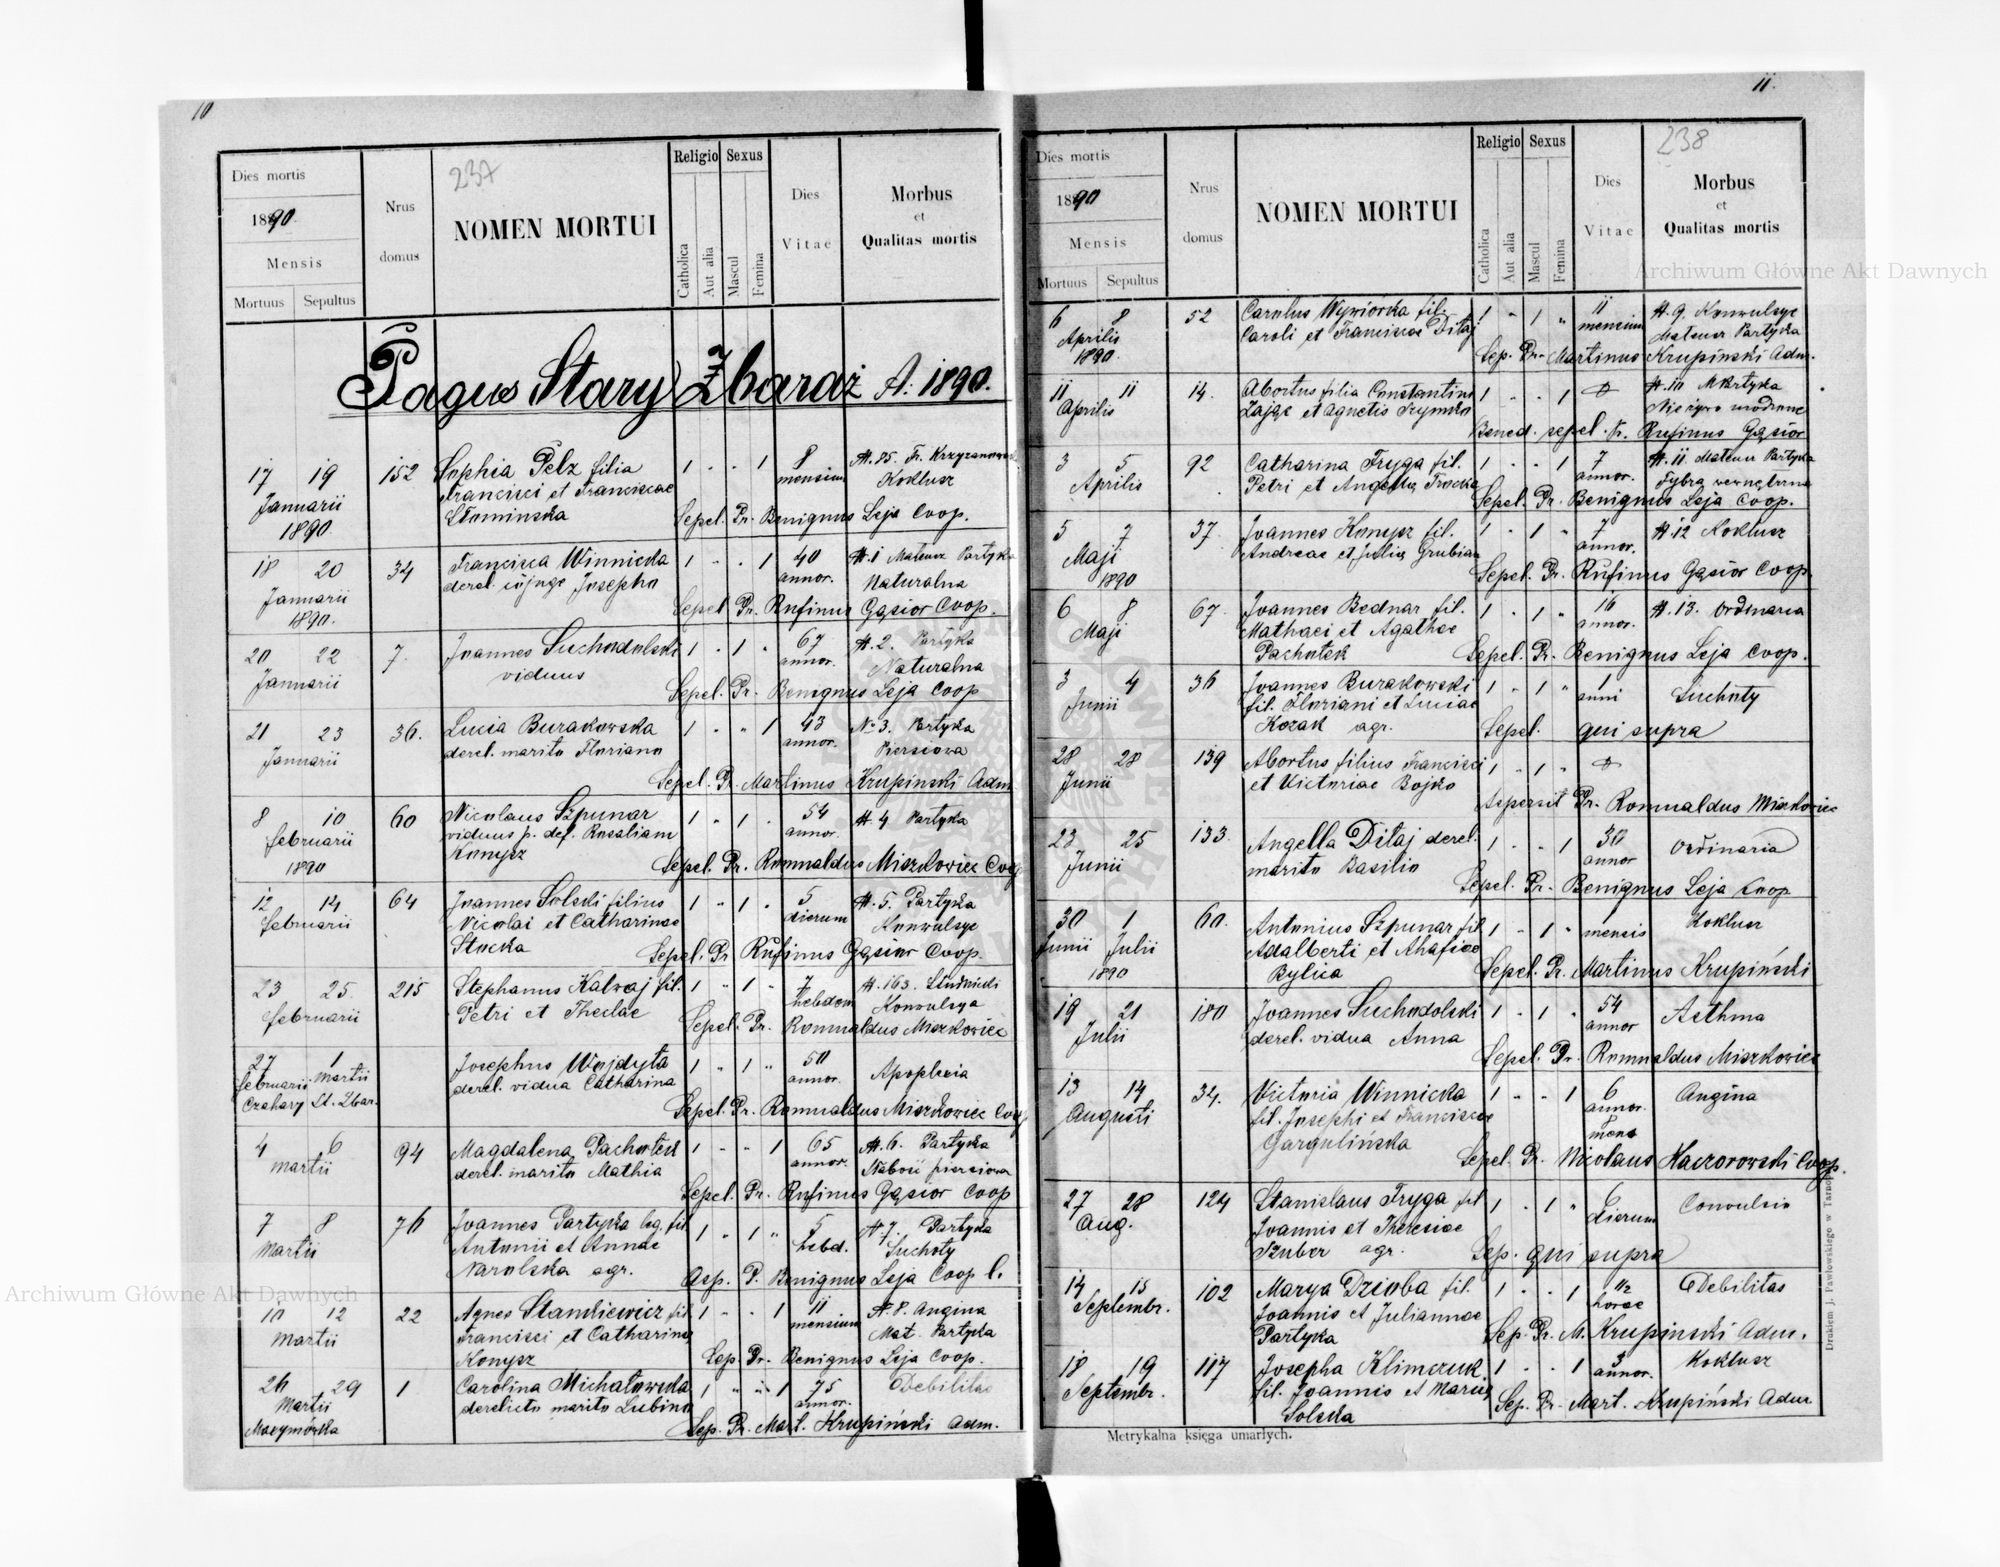 10
237
Dies mortis
1890.
Mensis
Mortuus Sepultus
Nrus
domus
NOMEN MORTUI
Religio
Catholica
Aut alia
Sexus
Mascul
Femina
Dies
Vitae
Morbus
et
Qualitas mortis
Pagus Stary Zbaraż A. 1890.
17 19 152 Sophia Pelz filia 1 " . 1 8 mensium № 85. Fr. Krzyzanowski
Januarii Francisci et Franciscae Koklusz
1890 Słominska Sepel. Pr. Benignus Leja Coop.
18 20 34 Francisca Winnicka 1 " . 1 40 annor. №. 1 Mateusz Partyka
Januarii derel. cojuge Josepho Naturalna
1890. Sepel Pr. Rufinus Gąsior Coop.
20 22 7. Joannes Suchodolski 1 " 1 " 67 annor. №. 2. Partyka
Januarii viduus Naturalna
Sepel. Pr. Benignus Leja Coop
21 23 36. Lucia Burakowska 1 " " 1 43 annor. № 3. Partyka
Januarii derel. marito Floriano Piersiowa
Sepel. Pr. Martinus Krupinski Adm
8 10 60 Nicolaus Szpunar 1 " 1 . 54 annor. №. 4 Partyka
februarii viduus p. def. Rosaliam
1890 Konysz Sepel. Pr. Romualdus Miszkowiec Coop
12 14 64 Joannes Solski filius 1 " 1 " 5 dierum №. 5. Partyka
februarii Nicolai et Catharinae Konwulsye
Stocka Sepel. Pr Rufinus Gąsior Coop.
23 25. 215 Stephanus Kalwaj fil. 1 " 1 " 7 hebdom №. 163. Studnicki
februarii Petri et Theclae Konwulsya
Sepel. Pr. Romualdus Miszkowiec
27 1 Josephus Wojdyta 1 " 1 " 50 annor. Apoplexia
februarii Martii derel. vidua Catharina
Czahary St. Zbar. Sepel. Pr. Romualdus Miszkowiec Coop
4 6 94 Magdalena Pachotek 1 " " 1 65 annor. №. 6. Partyka
martii derel. marito Mathia piersiowa
Sepel. Pr. Rufinus Gąsior Coop
7 8 76 Joannes Partyka leg. fil 1 " 1 " 5 hebd. № 7. Partyka
Martii Antonii et Annae Suchoty
Narolska agr. Asp. P. Benignus Leja Coop l.
10 12 22 Agnes Stankiewicz fil. 1 " . 1 11 mensium №. 8. Angina
Martii Francisci et Catharina Mat. Partyka
Konysz Sep. Pr. Benignus Leja Coop.
26 29 1 Carolina Michałowska 1 " " 1 75 annor. Debilitas
Martii derelicta marito Lubino
Maxymówka Sep. Pr. Mart. Krupiński Adm.
11.
238
Dies mortis
1890
Mensis
Mortuus Sepultus
Nrus
domus
NOMEN MORTUI
Religio
Catholica
Aut alia
Sexus
Mascul
Femina
Dies
Vitae
Morbus
et
Qualitas mortis
6 8 52 Carolus Wywiórka fil. 1 " 1 " 11 mensium №. 9. Konwulsye
Aprilis Caroli et Franciscae Ditaj Mateusz Partyka
1890. Sep. Pr. Martinus Krupiński Adm.
11 11 14. Abortus filia Constantini 1 . . 1 №. 10 MPartyka
Aprilis Zając et Agnetis Szymko Nieżywo urodzone
Bened. sepel. Pr. Rufinus Gąsior
3 5 92 Catharina Tryga fil. 1 . . 1 7 annor. №. 11 Mateusz Partyka
Aprilis Petri et Angellą Trocka
Sepel. Pr. Benignus Leja Coop.
5 7 37. Joannes Konysz fil. 1 " 1 " 7 annor. №. 12 Koklusz
Maji Andreae et Julią Grubian
1890 Sepel. Pr. Rufinus Gąsior Coop
6 8 67. Joannes Bednar fil. 1 " 1 " 16 annor. №. 13. Ordinaria
Maji Mathaei et Agathae
Pachotek Sepel. Pr. Benignus Leja Coop.
3 4 36 Joannes Burakowski 1 " 1 " 1 anni Suchoty
Junii fil. Floriani et Luciae
Kozak agr. Sepel. qui supra
28 28 139 Abortus filius Francisci 1 " 1 "
Junii et Victoriae Bojko
Aspersit Pr. Romualdus Miszkowiec
23 25 133. Angella Ditaj derel. 1 . . 1 30 annor Ordinaria
Junii marito Basilio
Sepel. Pr. Benignus Leja Coop
30 1 60. Antonius Szpunar fil 1 " 1 " mensis Koklusz
Junii Julii Adalberti et Ahafiae
1890 Bylica Sepel. Pr. Martinus Krupiński
19 21 180 Joannes Suchodolski 1 . 1 " 54 annor Asthma
Julii derel. vidua Anna
Sepel. Pr. Romualdus Miszkowiec
13 14 34. Victoria Winnicka 1 " " 1 6 annor. Angina
Augusti fil. Josephi et Franciscae mens
Gargulińska Sepel. Pr. Nicolaus Kaczorowski Coop.
27 28 124 Stanislaus Tryga fil 1 . 1 " 6 dierum Convulsio
Aug. Joannis et Theresiae
Szuber agr. Sep. qui supra
14 15 102 Marya Dzioba fil. 1 . . 1 1/2 horae Debilitas
Septembr. Joannis et Juliannae
Partyka Sep. Pr. M. Krupinski Adm.
18 19 117 Josepha Klimczuk 1 . . 1 3 annor. Koklusz
Septembr. fil. Joannis et Marią
Solska Sep. Pr. Mart. Krupiński Adm
Metrykalna księga umarłych.
Drukiem J. Pawłowskiego w Tarnop
Archiwum Główne Akt Dawnych
Archiwum Główne Akt Dawnych